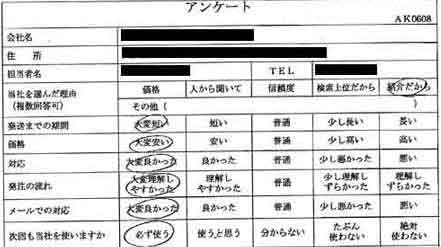 アンケート
AK0608
会社名
住 所
担当者名 TEL
当社を選んだ理由 (複数回答可) 価格 人から聞いて 信頼度 検索上位だから 紹介だから
その他 ( )
発送までの期間 大変短い 短い 普通 少し長い 長い
価格 大変安い 安い 普通 少し高い 高い
対応 大変良かった 良かった 普通 少し悪かった 悪い
発注の流れ 大変理解しやすかった 理解しやすかった 普通 少し理解しずらかった 理解しずらかった
メールでの対応 大変良かった 良かった 普通 少し悪かった 悪い
次回も当社を使いますか 必ず使う 使うと思う 分からない たぶん使わない 絶対使わない